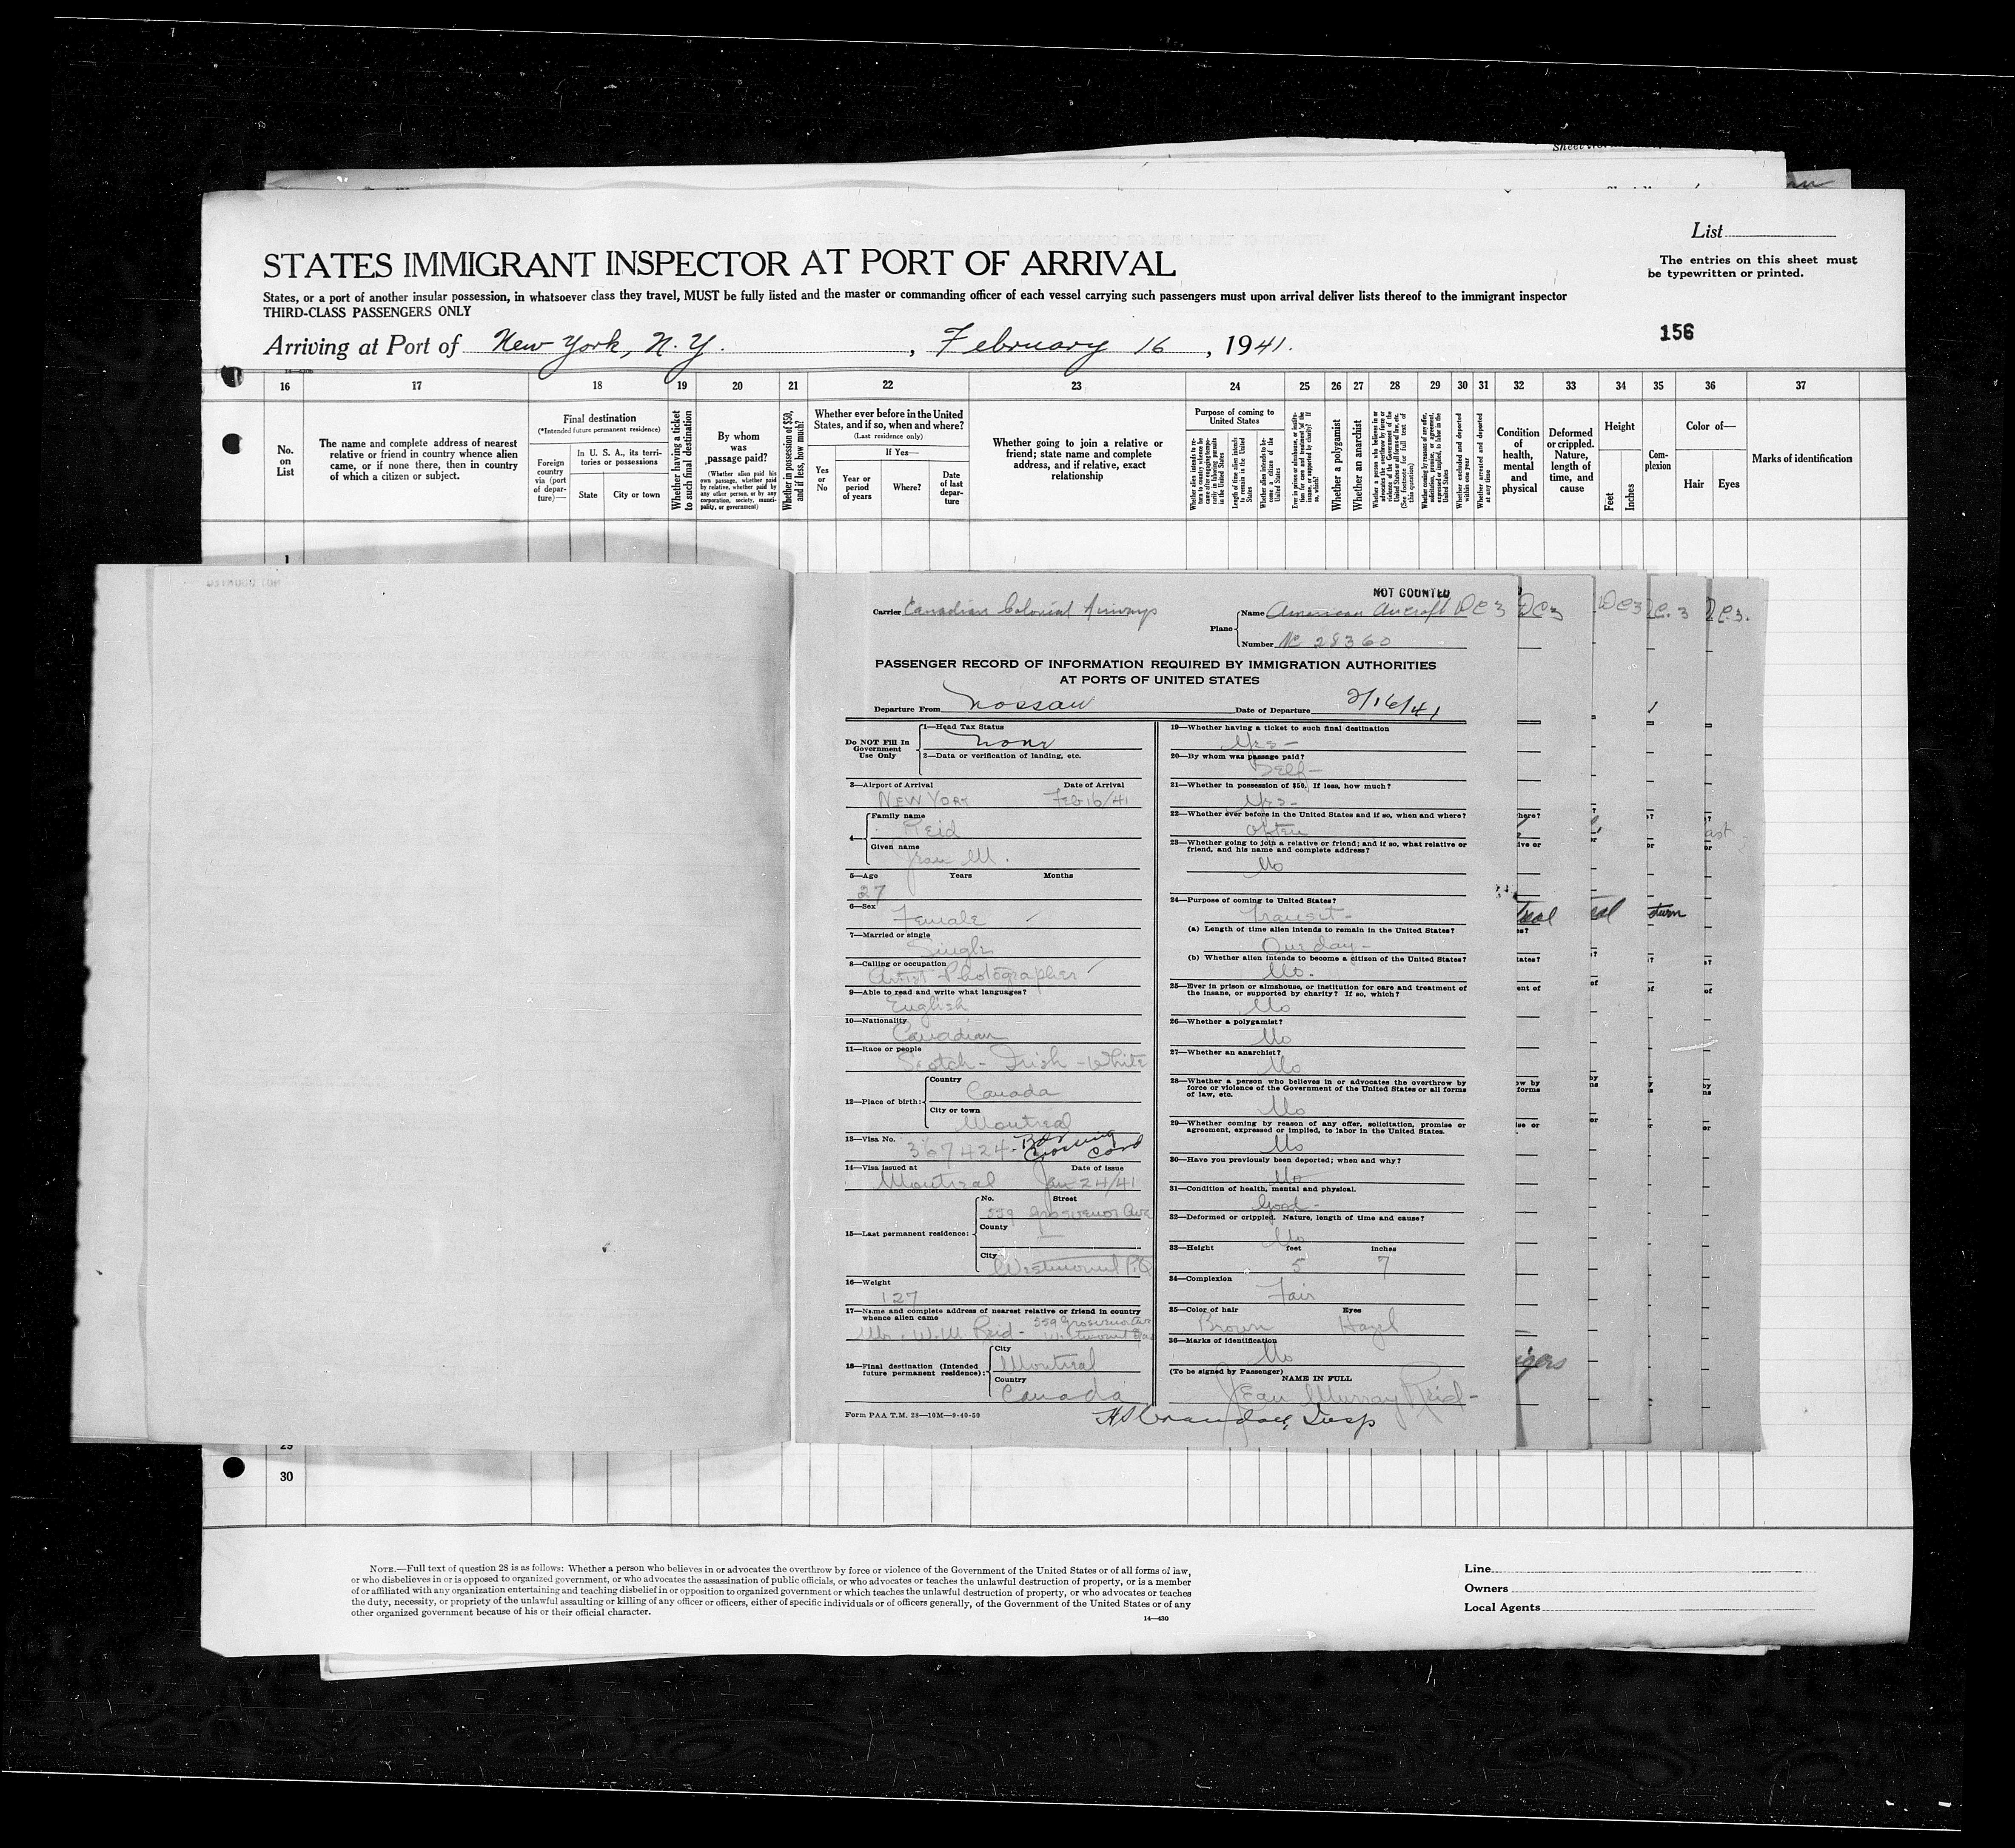 List
STATES IMMIGRANT INSPECTOR AT PORT OF ARRIVAL
The entries on this sheet must
be typewritten or printed.
States, or a port of another insular possession, in whatsoever class they travel, MUST be fully listed and the master or commanding officer of each vessel carrying such passengers must upon arrival deliver lists thereof to the immigrant inspector
THIRD-CLASS PASSENGERS ONLY
156
Arriving at Port of New York, N.Y. , February 16 , 1941.
16 17 18 19 20 21 22 23 24 25 26 27 28 29 30 31 32 33 34 35 36 37
No. on List
The name and complete address of nearest
relative or friend in country whence alien
came, or if none there, then in country
of which a citizen or subject.
Final destination
(*Intended future permanent residence)
Foreign country via (port of departure)—
In U. S. A., its territories or possessions
State
City or town
Whether having a ticket to such final destination
By whom was passage paid?
(Whether alien paid his own passage, whether paid by relative, whether paid by any other person, or by any corporation, society, municipality, or government)
Whether in possession of $50, and if less, how much?
Whether ever before in the United States, and if so, when and where?
(Last residence only)
Yes or No
If Yes—
Year or period of years
Where?
Date of last departure
Whether going to join a relative or
friend; state name and complete
address, and if relative, exact
relationship
Purpose of coming to United States
Length of time alien intends to remain in the United States
Whether alien intends to become a citizen of the United States
Whether a polygamist
Whether an anarchist
Whether arrested and deported at any time
Condition of health, mental and physical
Deformed or crippled. Nature, length of time, and cause
Height
Feet
Inches
Complexion
Color of—
Hair
Eyes
Marks of identification
1
NOT COUNTED
Carrier Canadian Colonial Airways
Plane
Name American Aircraft DC 3
Number NC 28360
PASSENGER RECORD OF INFORMATION REQUIRED BY IMMIGRATION AUTHORITIES
AT PORTS OF UNITED STATES
Departure From Nassau Date of Departure 2/16/41
Do NOT Fill In Government Use Only
1—Head Tax Status
None
2—Data or verification of landing, etc.
3—Airport of Arrival Date of Arrival
New York Feb 16/41
4— Family name
Reid
Given name
Jean M.
5—Age Years Months
27
6—Sex
Female
7—Married or single
Single
8—Calling or occupation
Artist-Photographer
9—Able to read and write what languages?
English
10—Nationality
Canadian
11—Race or people
Scotch-Irish-White
12—Place of birth:
Country
Canada
City or town
Montreal
13—Visa No.
367424 - Bdr Crossing Card
14—Visa issued at Date of issue
Montreal Jan 24/41
15—Last permanent residence:
No. Street
559 Grosvenor Ave
County
—
City
Westmount P.Q
16—Weight
127
17—Name and complete address of nearest relative or friend in country
whence alien came
W.M. Reid - 559 Grosvenor Ave
Westmount
18—Final destination (Intended
future permanent residence):
City
Montreal
Country
Canada
Form PAA T.M. 28—10M—9-40-50
19—Whether having a ticket to such final destination
Yes -
20—By whom was passage paid?
Self -
21—Whether in possession of $50. If less, how much?
Yes -
22—Whether ever before in the United States and if so, when and where?
Often
23—Whether going to join a relative or friend; and if so, what relative or
friend, and his name and complete address?
No
24—Purpose of coming to United States?
Transit -
(a) Length of time alien intends to remain in the United States?
One day -
(b) Whether alien intends to become a citizen of the United States?
No.
25—Ever in prison or almshouse, or institution for care and treatment of
the insane, or supported by charity? If so, which?
No
26—Whether a polygamist?
No
27—Whether an anarchist?
No
28—Whether a person who believes in or advocates the overthrow by
force or violence of the Government of the United States or all forms
of law, etc.
No
29—Whether coming by reason of any offer, solicitation, promise or
agreement, expressed or implied, to labor in the United States.
No
30—Have you previously been deported; when and why?
No
31—Condition of health, mental and physical.
Good -
32—Deformed or crippled. Nature, length of time and cause?
No
33—Height feet inches
5 7
34—Complexion
Fair
35—Color of hair Eyes
Brown Hazel
36—Marks of identification
No
(To be signed by Passenger)
NAME IN FULL
Jean Murray Reid -
29
30
NOTE.—Full text of question 28 is as follows: Whether a person who believes in or advocates the overthrow by force or violence of the Government of the United States or of all forms of law,
or who disbelieves in or is opposed to organized government, or who advocates the assassination of public officials, or who advocates or teaches the unlawful destruction of property, or is a member
of or affiliated with any organization entertaining and teaching disbelief in or opposition to organized government or which teaches the unlawful destruction of property, or who advocates or teaches
the duty, necessity, or propriety of the unlawful assaulting or killing of any officer or officers, either of specific individuals or of officers generally, of the Government of the United States or of any
other organized government because of his or their official character.
14—430
Line
Owners
Local Agents